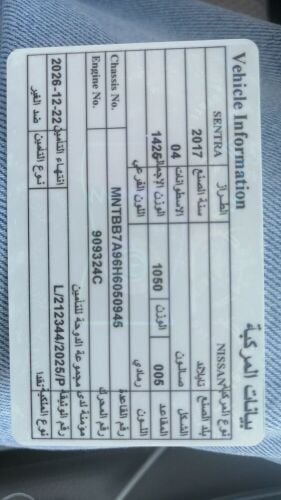 Vehicle Information بيانات المركبة
نوع المركبة NISSAN الطراز SENTRA
بلد الصنع تايلاند سنة الصنع 2017
الشكل صالون الاسطوانات 04
المقاعد 005 الوزن 1050 الوزن الإجمالي 1425
اللون رمادي اللون الفرعي
رقم القاعدة MNTBB7A96H6050945 Chassis No.
رقم المحرك 909324C Engine No.
مؤمنة لدى مجموعة الدوحة للتأمين
رقم الوثيقة L/212344/2025/P انتهاء التأمين 2026-12-22
نوع الملكية نقدا نوع التأمين ضد الغير